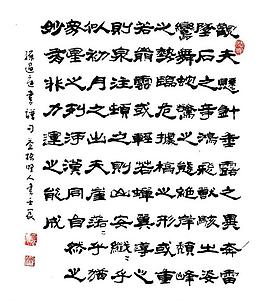 觀夫懸針垂露之異奔雷
墜石之奇鴻飛獸駭之資
鸞舞蛇驚之態絕岸頹峰
之勢臨危據槁之形或重
若崩雲或輕若蟬翼導之
則泉注頓之則山安纖〻乎
似初月之出天崖落〻乎猶
眾星之列河漢同自然之
妙有非力運之能成
孫過庭書譜句